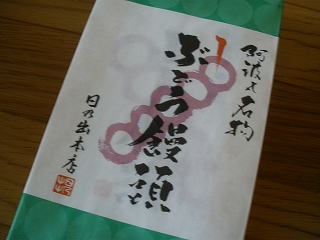 阿波の名物
ぶどう饅頭
日乃出本店